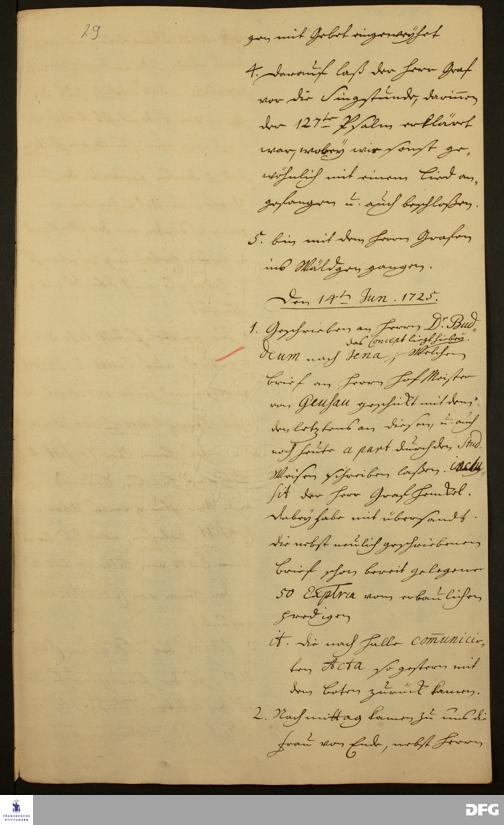 29
gen mit Gebet eingeweyhet
4. Darauf laß der Herr Graf
vor die Singstunde, darinnen
der 127te Psalm erkläret
war, wobey wir sonst ge-
wöhnlich mit einem Lied an-
gefangen u. auch beschloßen.
5. bin mit dem Herrn Grafen
ins Wäldgen gangen.
Den 14ten Jun. 1725.
1. Geschrieben an Herrn Dr. Bud-
das Concept liegt hiebey
deum nach Jena, Welchen
brief an Herrn Hof Meister
von Geusau geschickt mit dem
den letztens an diesen, u. auch
noch heute a part durch den Stud.
Meisen schreiben laßen.
sit der Herr Graf Henckel.
Dabey habe mit übersandt.
die nebst neulich geschriebenen
brief schon bereit gelegene
50 Exptria vom erbaulichen
predigen
it. die nach Halle communicir-
ten Acta so gestern mit
dem boten zurück kamen.
2. Nach mittag kamen zu uns die
Frau von Ende, nebst Herrn
FRANCKESCHE
STIFTUNGEN
DFG